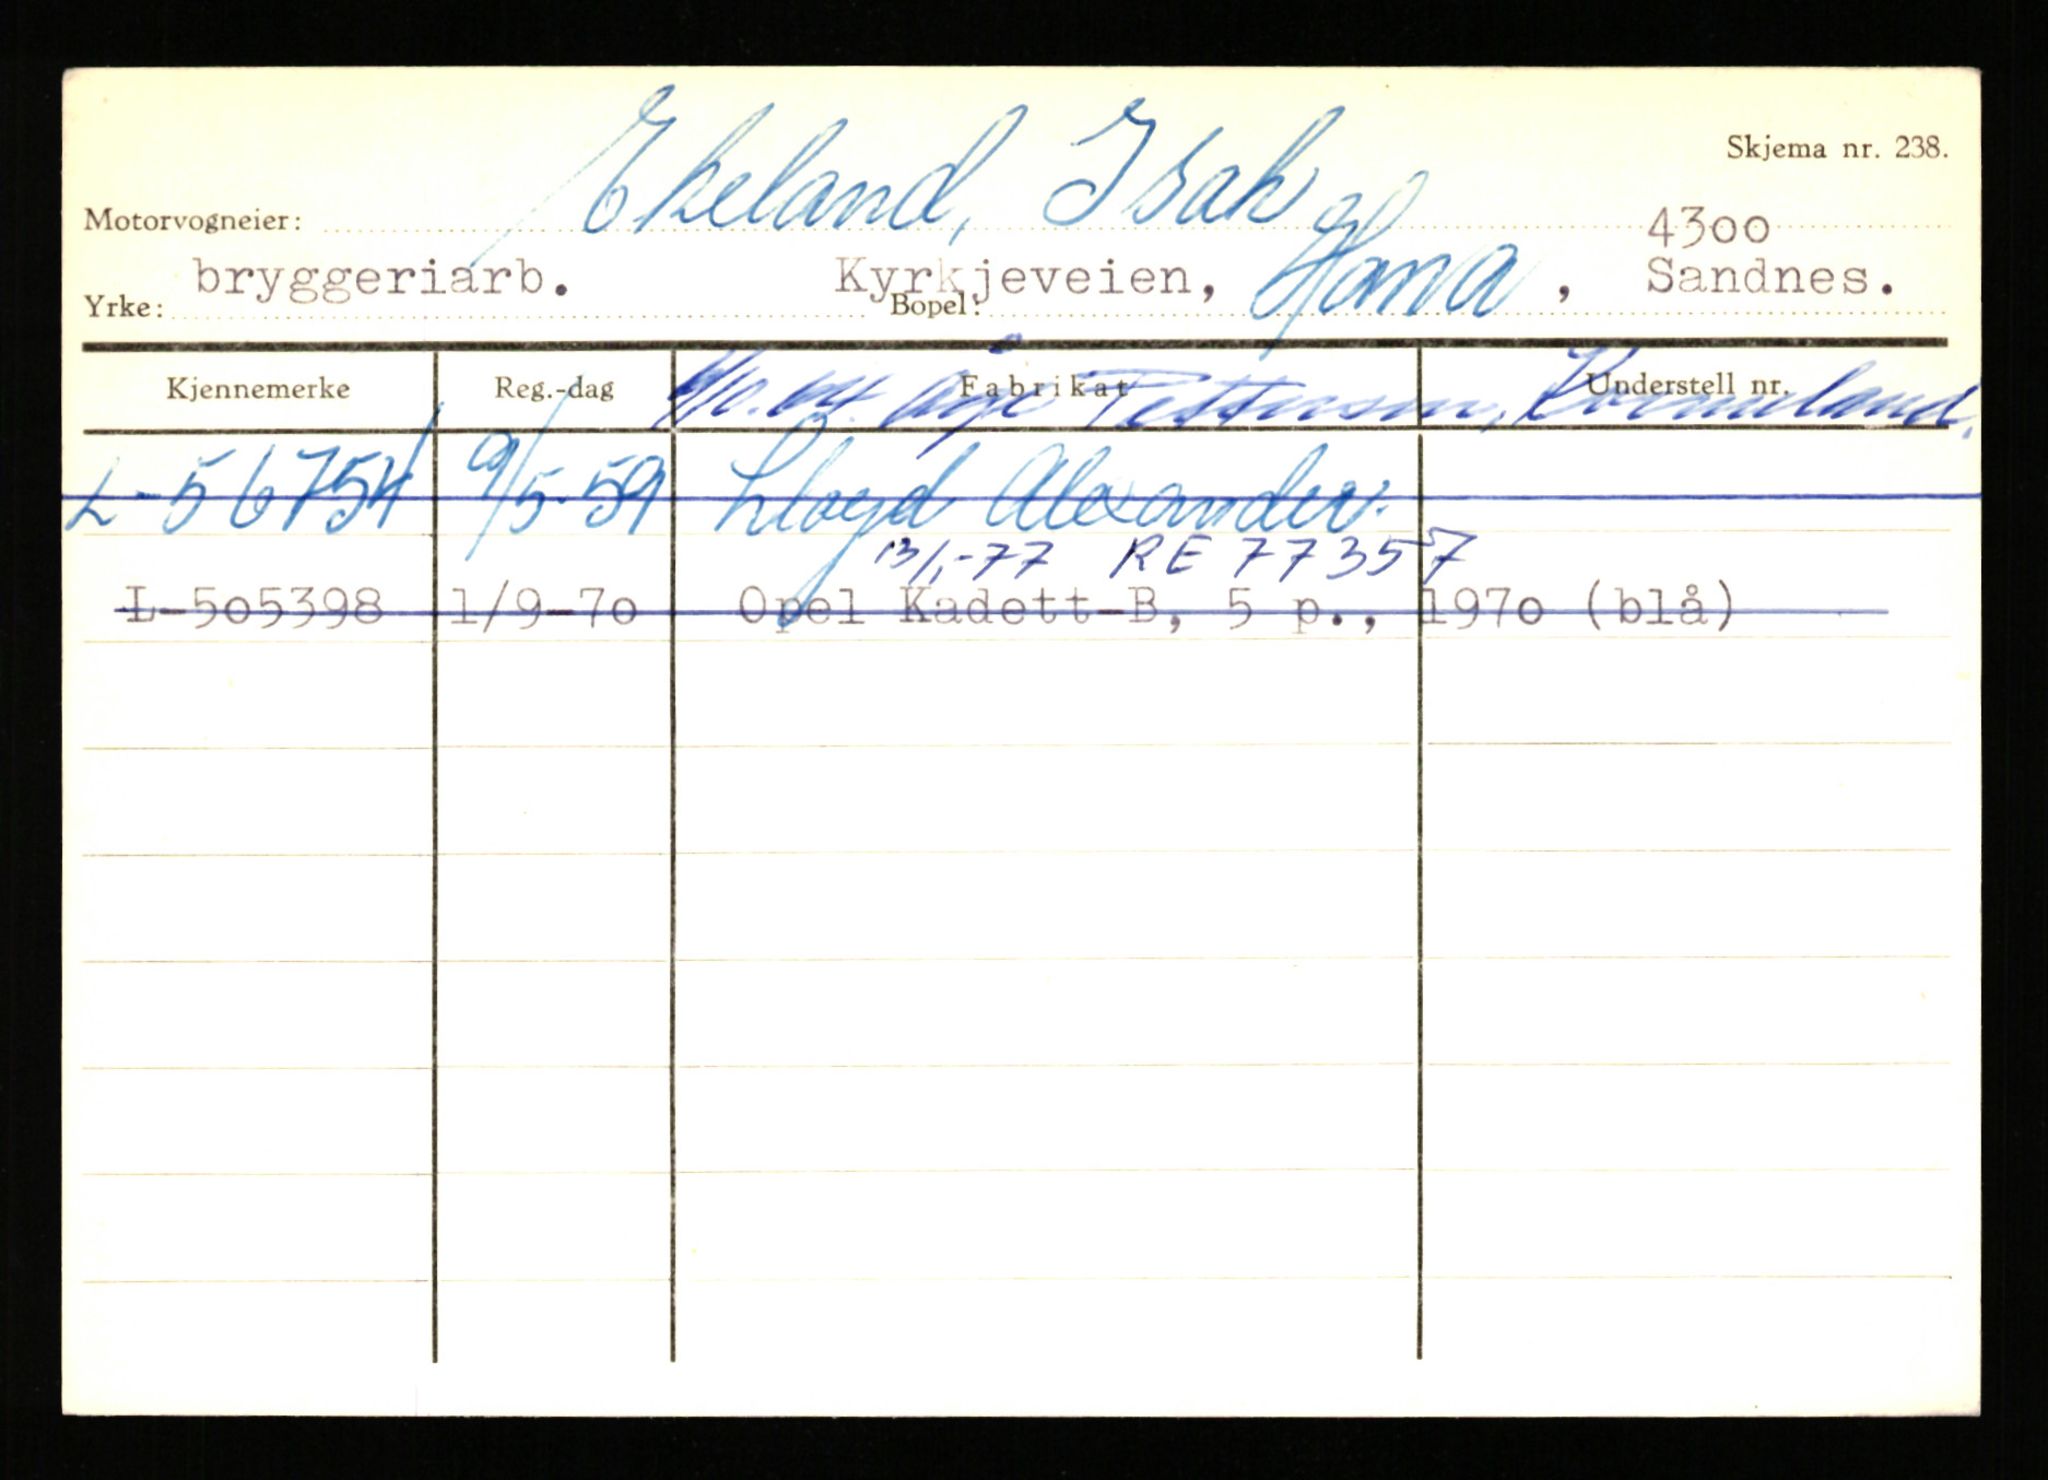 Skjema nr. 238.
Motorvogneier: Ekeland, Isak
4300
bryggeriarb. Kyrkjeveien, Hana, Sandnes.
Yrke: Bopel:
Kjennemerke Reg.-dag Fabrikat Understell nr.
Åge Pettersen,
L-56754 9/5-59 Lloyd Alexander.
13/1-77 RE 77357
L-505398 1/9-70 Opel Kadett-B, 5 p., 1970 (blå)